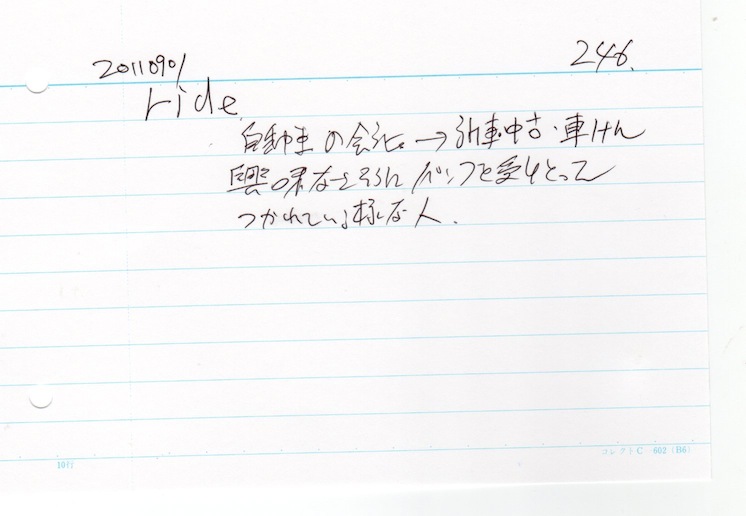 20110901
246.
ride.
自動車の会社→新車・中古・車けん
興味なさそうに パンフを受けとって
つかれている様な人.
10行
コレクト C-602 (B6)